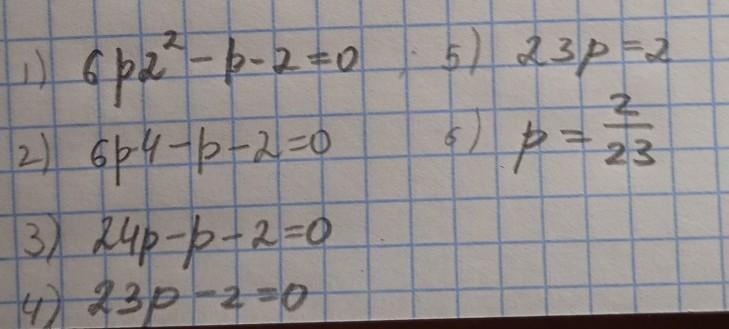 1) 6p2² - p - 2 = 0
2) 6p4 - p - 2 = 0
3) 24p - p - 2 = 0
4) 23p - 2 = 0
5) 23p = 2
6) p = 2/23